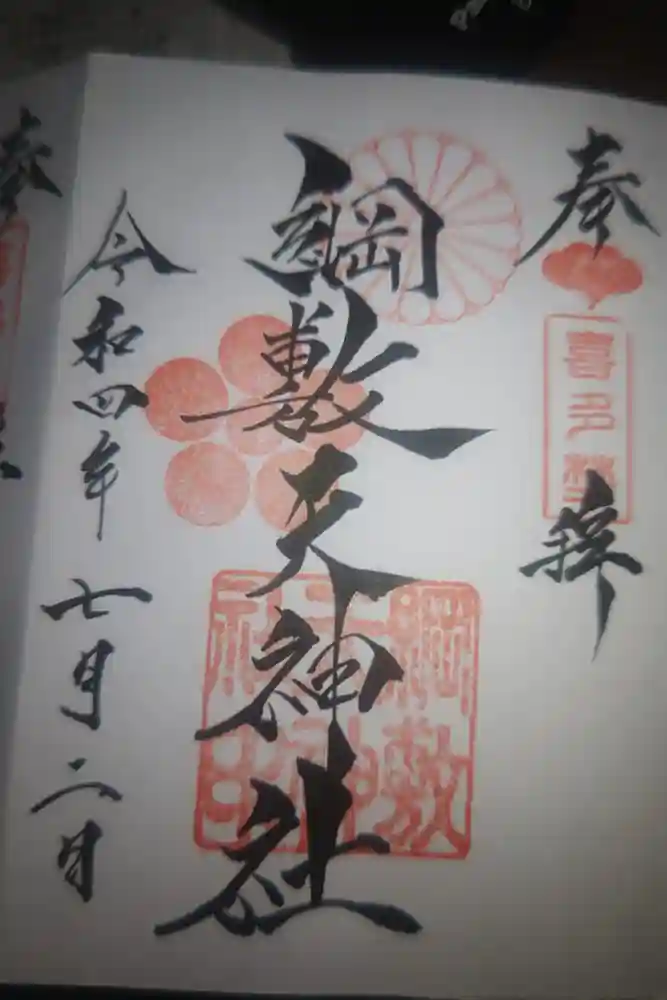 奉拝
喜多埜
綱敷天神社
綱敷天神社印
令和四年七月二日
奉